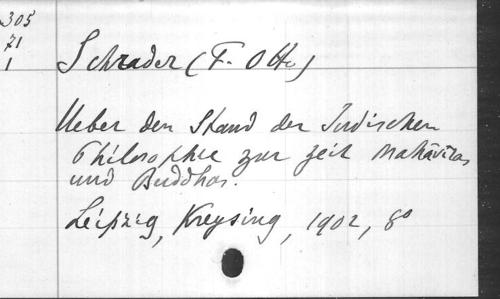 305
71
1
Schrader (F. Otto)
Ueber den Stand der Indischen
Philosophie zur zeit Mahāvīras
und Buddhas.
Leipzig, Kreysing, 1902, 8°